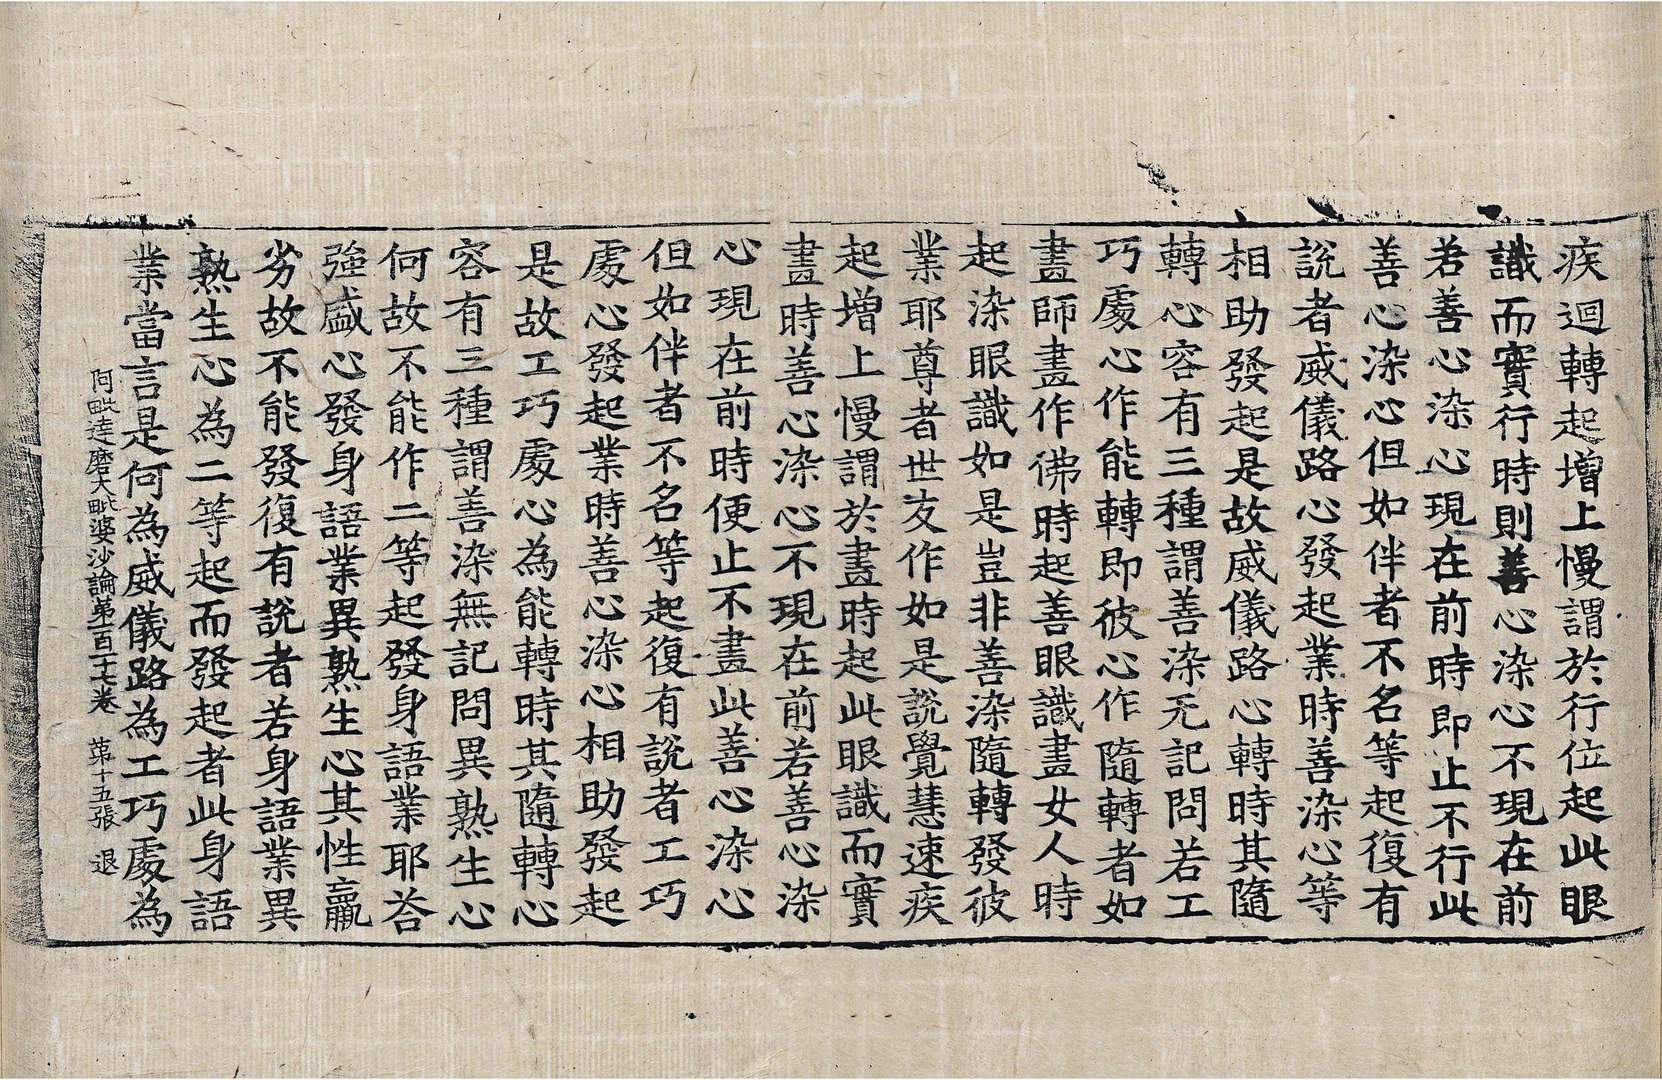 疾迴轉起增上慢謂於行位起此眼
識而實行時則善心染心不現在前
若善心染心現在前時即止不行此
善心染心但如伴者不名等起復有
說者威儀路心發起業時善染心等
相助發起是故威儀路心轉時其隨
轉心容有三種謂善染无記問若工
巧處心作能轉即彼心作隨轉者如
畫師畫作佛時起善眼識畫女人時
起染眼識如是豈非善染隨轉發彼
業耶尊者世友作如是說覺慧速疾
起增上慢謂於畫時起此眼識而實
畫時善心染心不現在前若善心染
心現在前時便止不畫此善心染心
但如伴者不名等起復有說者工巧
處心發起業時善心染心相助發起
是故工巧處心為能轉時其隨轉心
容有三種謂善染無記問異熟生心
何故不能作二等起發身語業耶荅
強盛心發身語業異熟生心其性羸
劣故不能發復有說者若身語業異
熟生心為二等起而發起者此身語
業當言是何為威儀路為工巧處為
阿毗達磨大毗婆沙論第百十七卷 第十五張 退